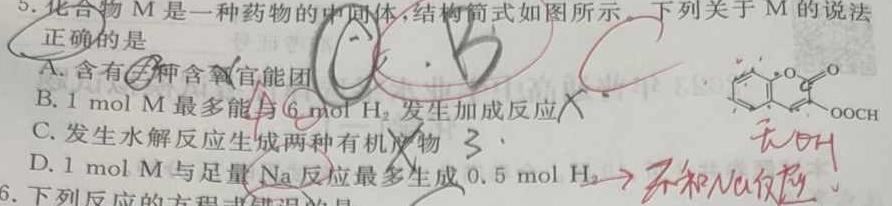 5. 化合物 M 是一种药物的中间体,结构简式如图所示。下列关于 M 的说法
正确的是
A. 含有三种含氧官能团
B. 1 mol M 最多能与 6 mol H₂ 发生加成反应
C. 发生水解反应生成两种有机产物 3.
D. 1 mol M 与足量 Na 反应最多生成 0.5 mol H₂ → 不和Na反应
O O
OOCH
无OH
6. 下列反应的方程式错误的是